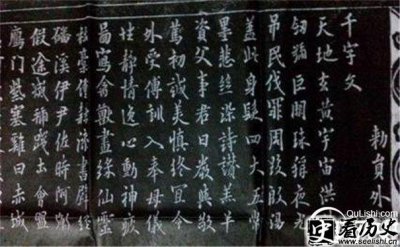 千字文
勅
天地玄黃宇宙洪
劍號巨闕珠稱夜
弔民伐罪周發殷湯
蓋此身髮四大五
墨悲絲染詩讚羔羊
資父事君曰嚴與敬
篤初誠美慎終宜令
外受傅訓入奉母儀
性靜情逸心動神疲
啚寫禽獸畫綵仙靈
杜稾鍾隸漆書壁經
磻溪伊尹佐時阿
假途滅虢踐土會盟
鴈門紫塞雞田赤城
QuLishi.com
看历史
www.seelishi.cn